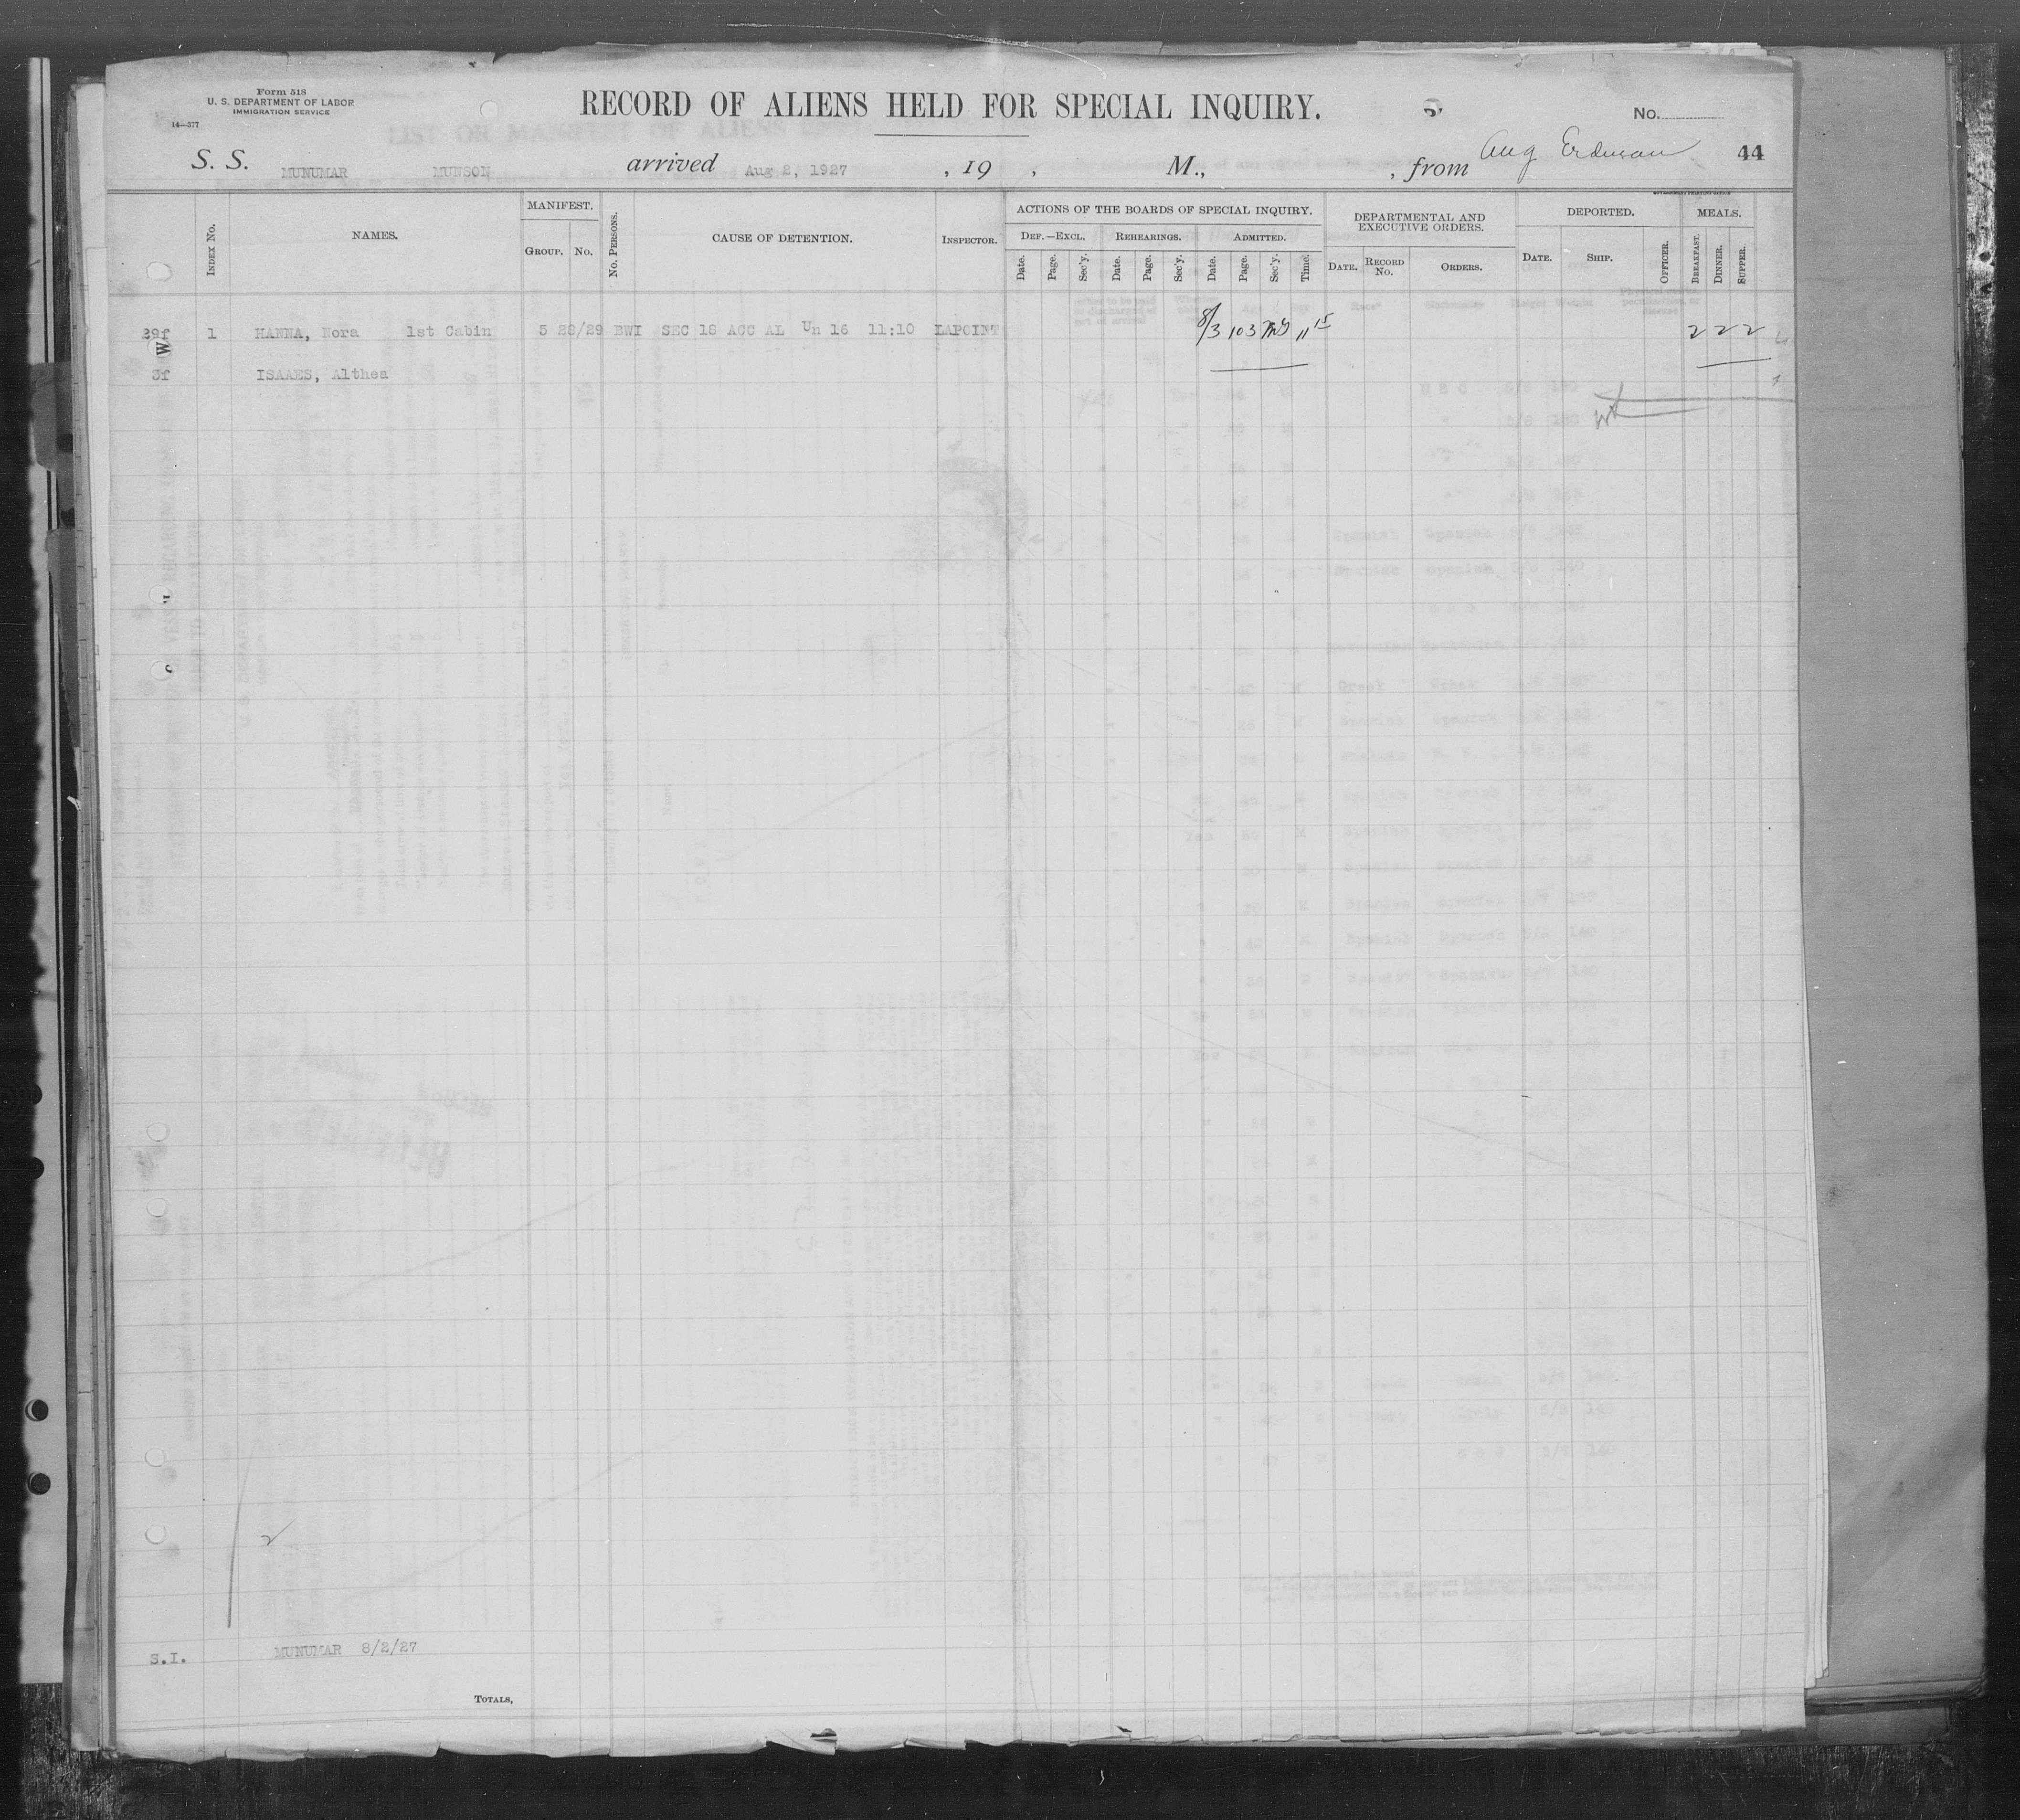 Form 518
U. S. DEPARTMENT OF LABOR
IMMIGRATION SERVICE
14—377
RECORD OF ALIENS HELD FOR SPECIAL INQUIRY.
No.
S. S. MUNUMAR MUNSON arrived Aug 2, 1927 , 19 , M., , from Aug 44
INDEX No. NAMES. MANIFEST. GROUP. No. No. PERSONS. CAUSE OF DETENTION. INSPECTOR.
ACTIONS OF THE BOARDS OF SPECIAL INQUIRY.
DEF.—EXCL. REHEARINGS. ADMITTED.
Date. Page. Sec'y. Date. Page. Sec'y. Date. Page. Sec'y. Time.
DEPARTMENTAL AND
EXECUTIVE ORDERS.
DATE. RECORD No. ORDERS.
DEPORTED.
DATE. SHIP. OFFICER.
MEALS.
BREAKFAST. DINNER. SUPPER.
39f 1 HANNA, Nora 1st Cabin 5 28/29 BWI SEC 18 ACC AL Un 16 11:10 LAPOINT 8/3 103 11 15 2 2 2
W
3f ISAAES, Althea
2
S.I. MUNUMAR 8/2/27
TOTALS,